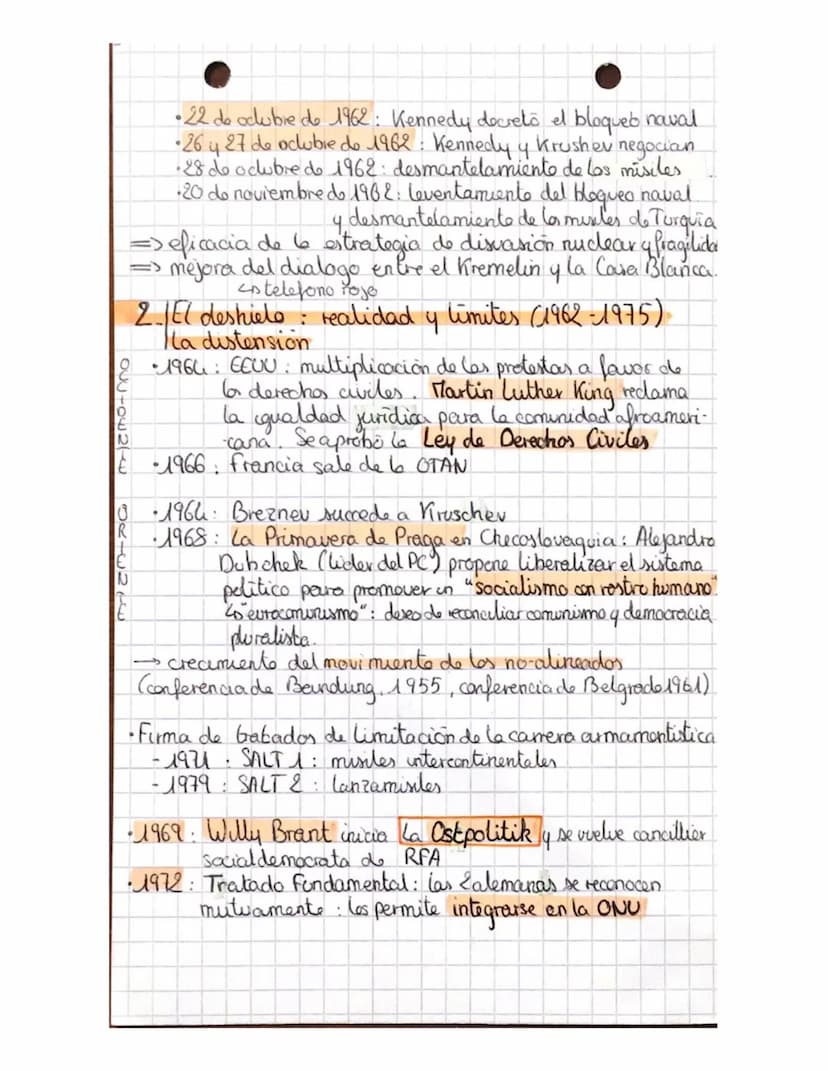 ·22 de octubre de 1962 : Kennedy decretó el bloqueo naval
·26 y 27 de octubre de 1962 : Kennedy y Krushev negocian
·28 de octubre de 1962 : desmantelamiento de los misiles
·20 de noviembre de 1962 : leventamiento del bloqueo naval
y desmantelamiento de los misiles de Turquía
=> eficacia de la estrategia de disuasión nuclear y fragilida
=> mejora del dialogo entre el Kremelin y la Casa Blanca.
↳ telefono rojo
2. El deshielo : realidad y límites (1962-1975)
la distensión
OCCIDENTE
·1964 : EEUU : multiplicación de las protestas a favor de
los derechos civiles. Martin Luther King reclama
la igualdad jurídica para la comunidad afroameri-
-cana. Se aprobó la Ley de Derechos Civiles
·1966 : Francia sale de la OTAN
ORIENTE
·1964 : Breznev succede a Kruschev
·1968 : La Primavera de Praga en Checoslovaquia : Alejandro
Dubchek (líder del PC) propone liberalizar el sistema
político para promover un "socialismo con rostro humano"
↳ "eurocomunismo" : deseo de reconciliar comunismo y democracia
pluralista.
→ crecimiento del movimiento de los no-alineados
(conferencia de Bandung, 1955, conferencia de Belgrado 1961)
·Firma de tratados de limitación de la carrera armamentística
- 1971 . SALT 1 : misiles intercontinentales
- 1979 : SALT 2 : lanzamisiles
·1969 : Willy Brant inicia la Ostpolitik y se vuelve cancillier
socialdemocrata de RFA
·1972 : Tratado Fundamental : las 2 alemanas se reconocen
mutuamente : les permite integrarse en la ONU